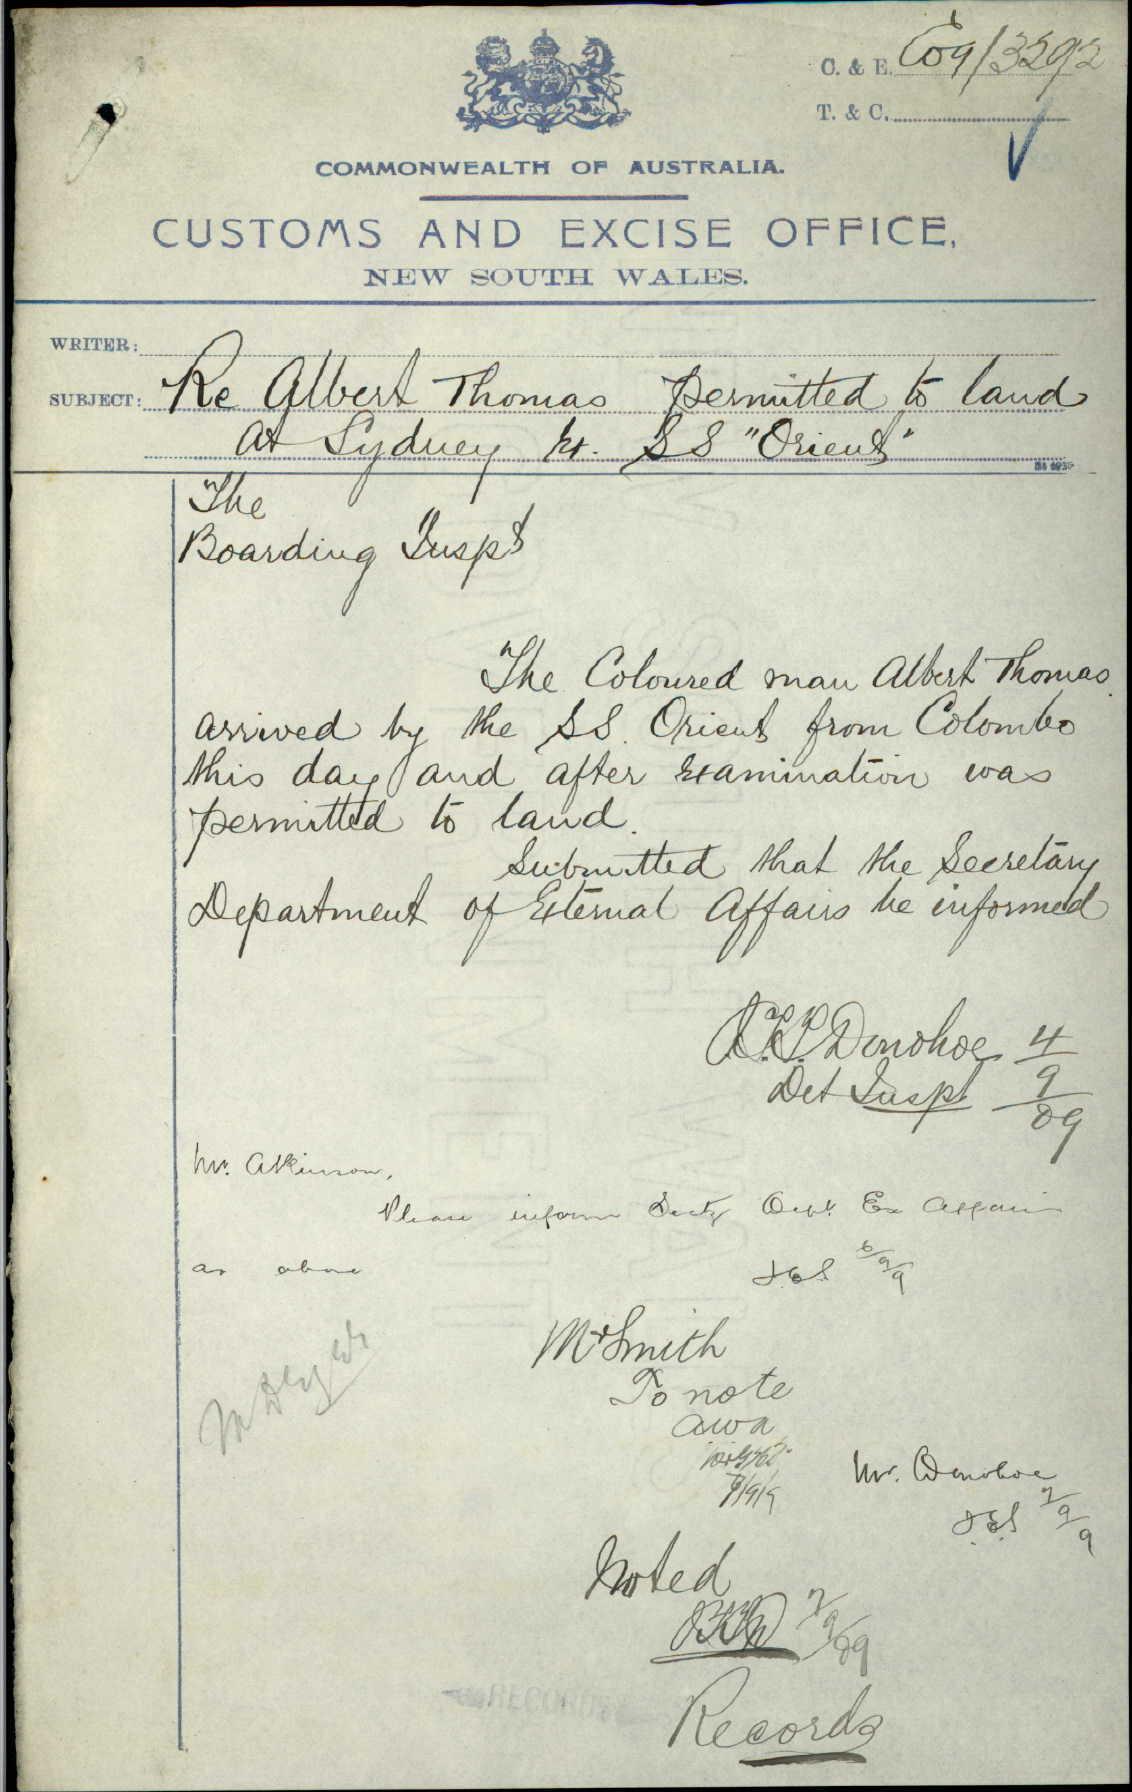 C. & E. C09/3292
T. & C.
COMMONWEALTH OF AUSTRALIA.
CUSTOMS AND EXCISE OFFICE,
NEW SOUTH WALES.
WRITER:
SUBJECT: Re Albert Thomas permitted to land
at Sydney ex. SS "Orient"
The
Boarding Inspt
The Coloured man Albert Thomas
arrived by the SS. Orient from Colombo
this day and after examination was
permitted to land.
Submitted that the Secretary
Department of External Affairs be informed
Donohoe 4/9/09
Det Inspt
Mr. Atkinson,
Please inform Secty Dept. Ex Affairs
as above
6/9/9
Mr Smith
To note
awa
7/9/9
Mr. Donohoe
7/9/9
Noted
7/9/09
Records